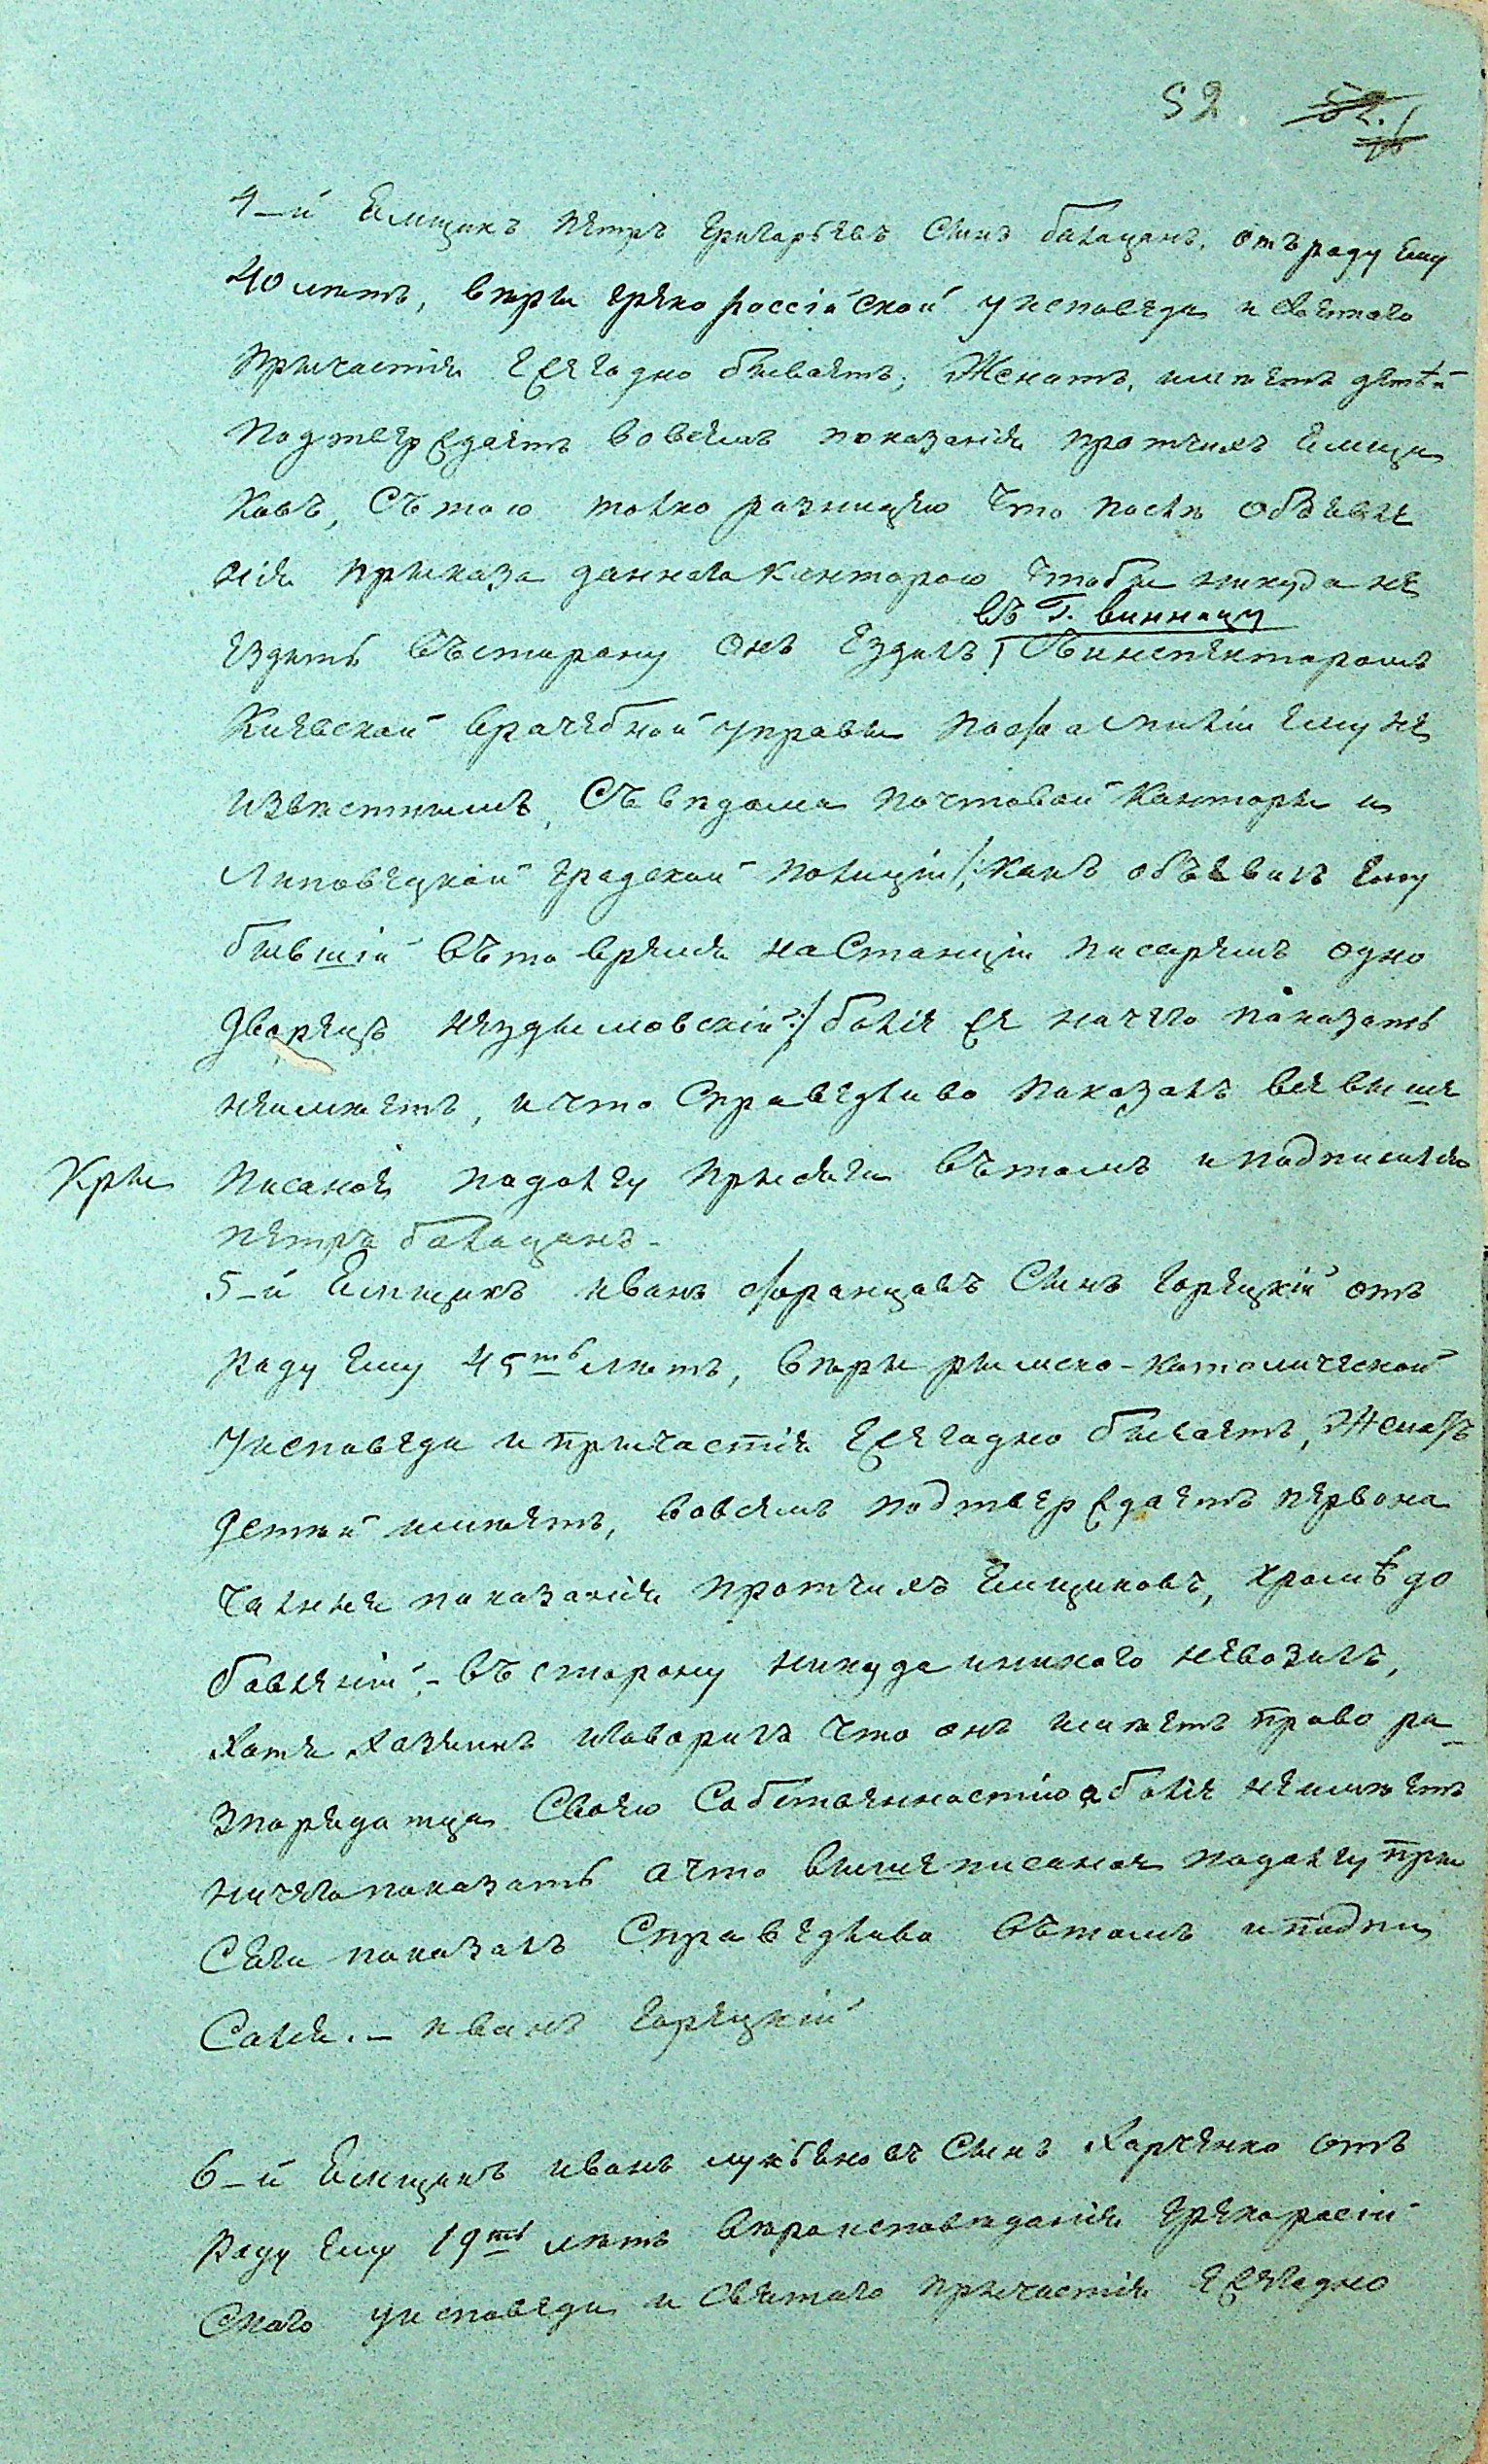 52
4-й Емщикъ Петръ Григарьевъ Сынъ балацанъ, отъ раду Ему
40 летъ, веры греко россійской у исповеди и Святого
причастія Ежегадно бываетъ, Женатъ, имеетъ детѣй
подтверждаетъ вовсемъ показанія протчихъ Емщи
ковъ, Съ тою толко разницею что после объявле
нія приказа даннога Канторою чтобы никуда не
въ Г. винницу
Ездить въ старону Онъ Ездилъ, Съ инспектораmъ
Киевской врачебной управы пофамиліи Ему не
известнымъ, Съ ведома почтовой Канторы и
Липовецкой градской полиціи /: какъ объявилъ Ему
бывшій въ то время на Станціи писаремъ одно
дворецъ нездымовскій :/ боліе же ничего паказать
неимеетъ, и что Справедливо паказалъ все выше
КрЫ писаноя падолгу присяги въ томъ иподписался
петръ балацанъ -
5-й Емщикъ иванъ францовъ Сынъ Горецкій отъ
раду Ему 45ть летъ, веры римско-католической
У исповеди и причастія Ежегадно бываетъ, Женатъ
детей имеетъ, вовсемъ подтверждаетъ первона
чалнея показанія протчихъ Емщиковъ, кромѣ до
бавленій, - въ старону никуда иникого невозилъ,
хотя хазяинъ иговорилъ что онъ имеетъ право ра
зпарядатца Своею Собственностію а боліе неимеетъ
ничего показать а что вышеписаноя падолгу при
Сяги показалъ Справедливо въ томъ и подпи
Сался. - иванъ Горецкій
6-й Емщикъ иванъ лукьяновъ Сынъ Харченко отъ
Раду Ему 19ть летъ вероисповеданія грекоросій
Ского уисповеди и Святаго причастія Ежегадно